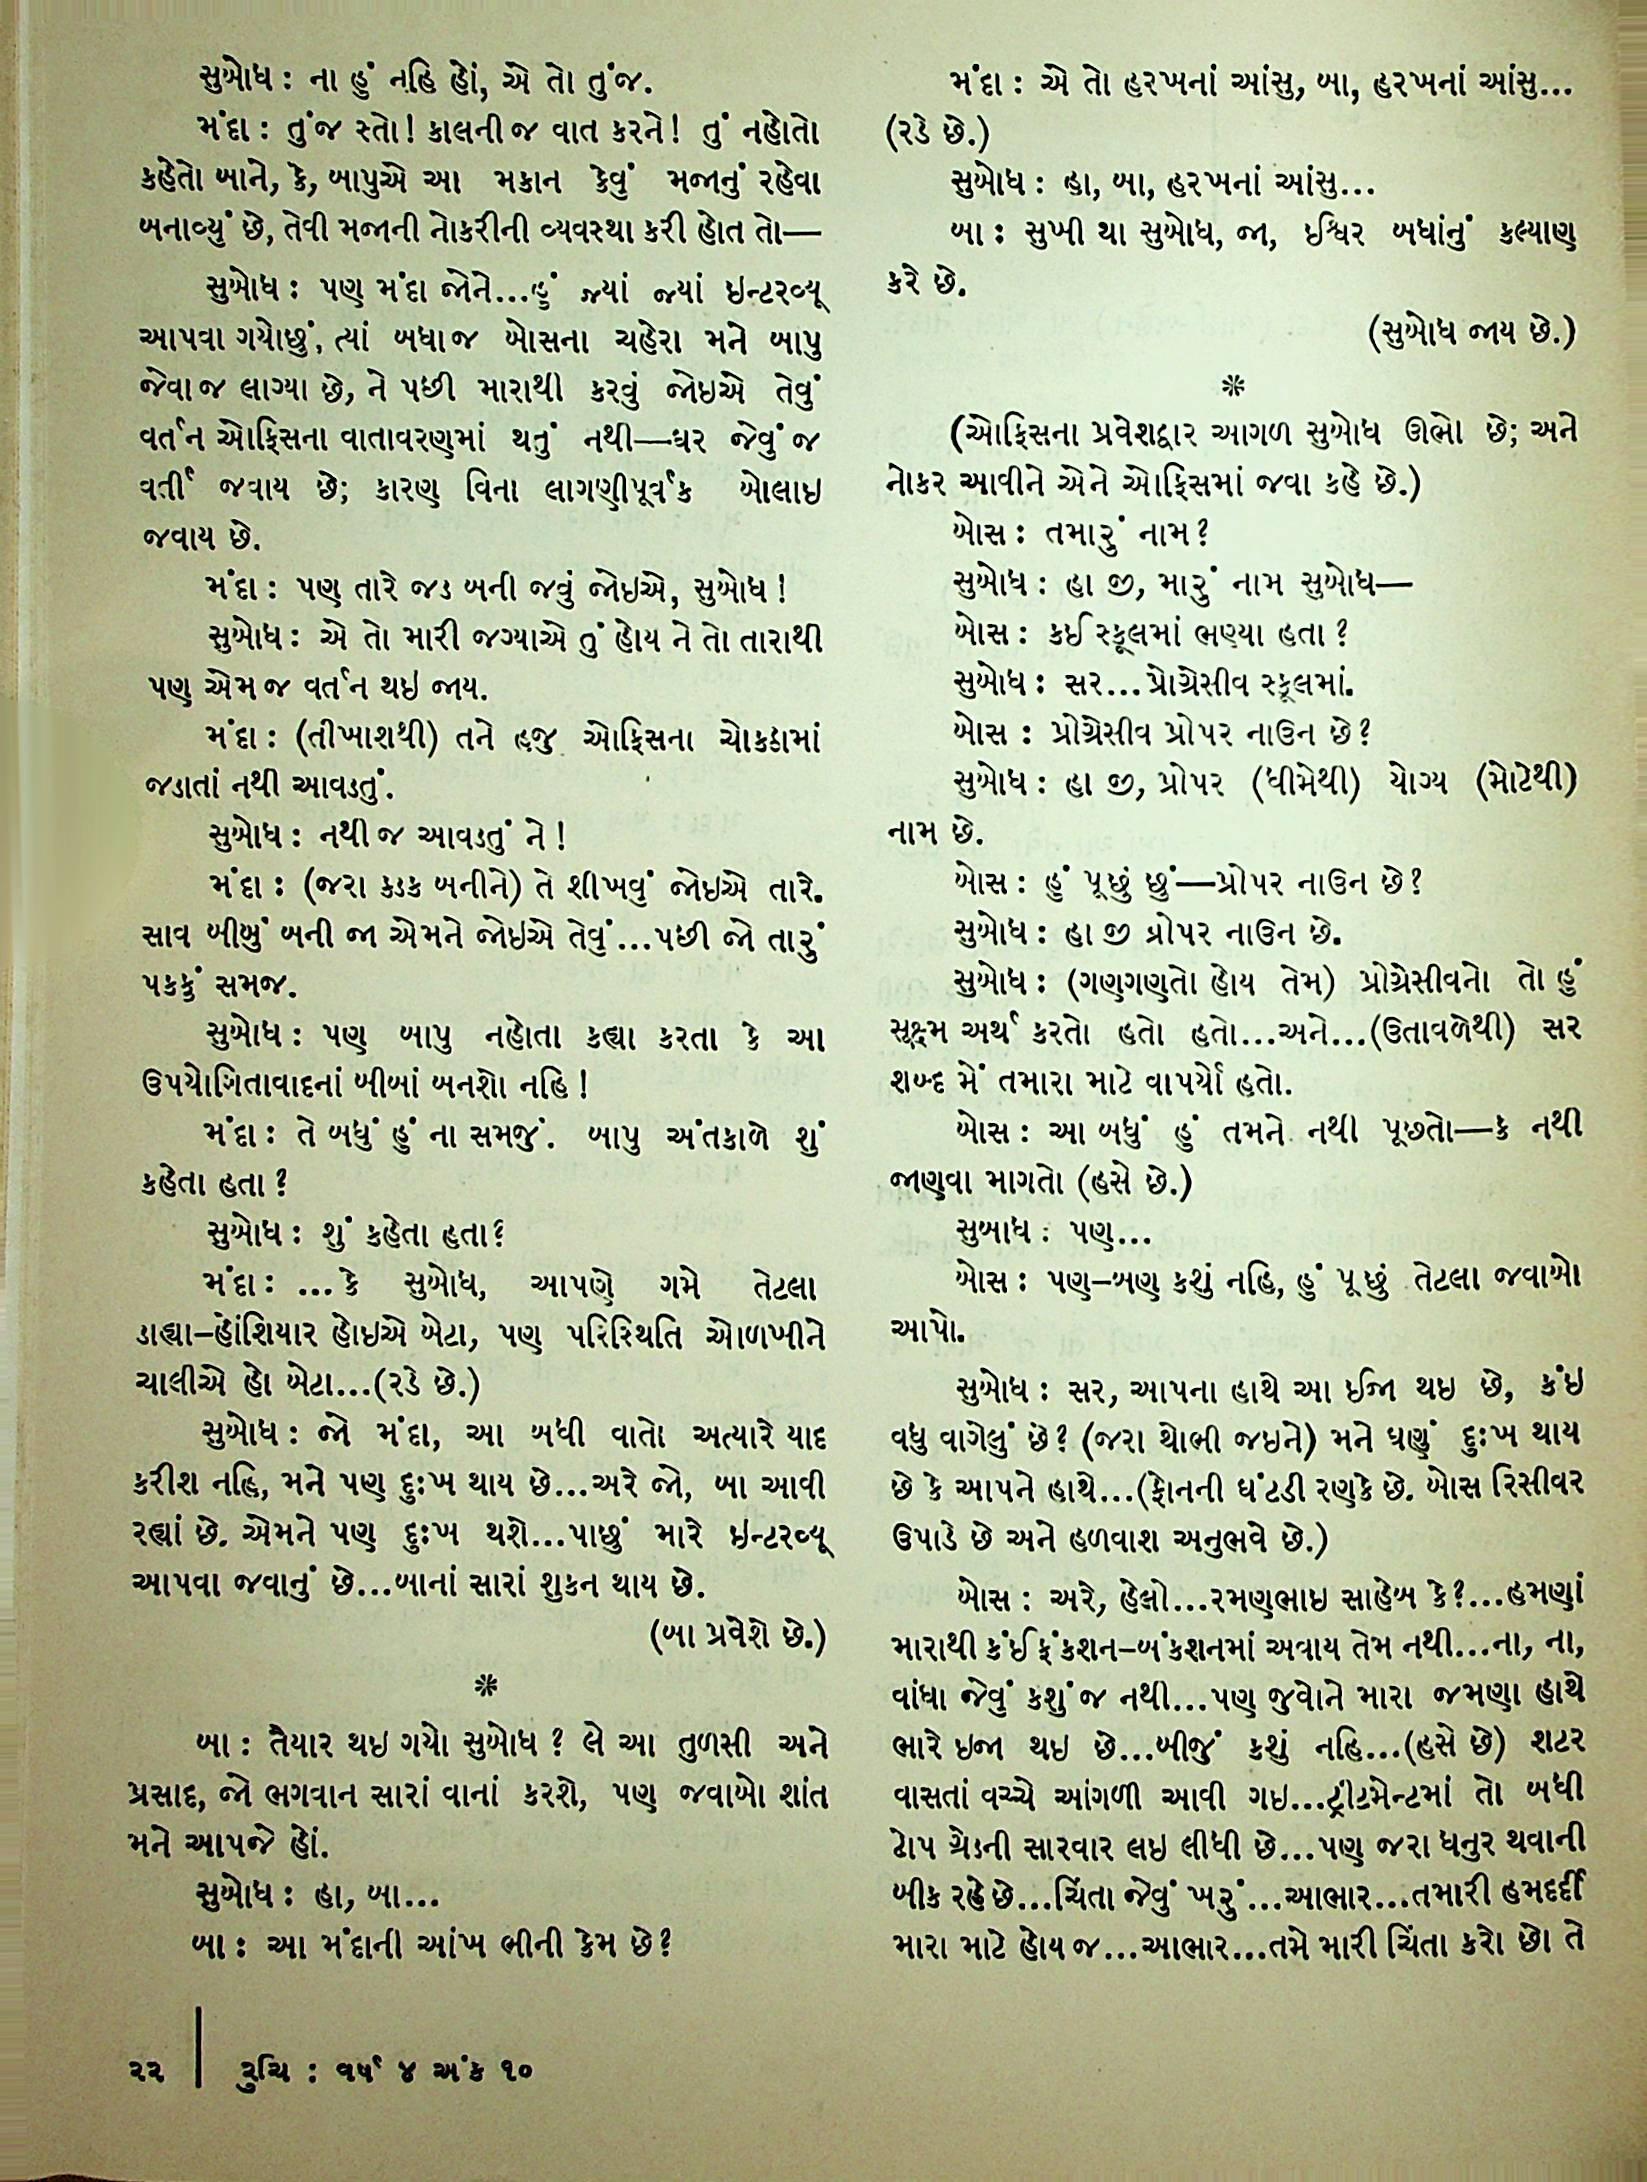 સુબોધ : ના હું નહિ હોં, એ તો તુંજ.
મંદા : તુંજ સ્તો! કાલની જ વાત કરને! તું નહોતો
કહેતો બાને, કે, બાપુએ આ મકાન કેવું મજાનું રહેવા
બનાવ્યું છે, તેવી મજાની નોકરીની વ્યવસ્થા કરી હોત તો—
સુબોધ : પણ મંદા જોને...હું જ્યાં જ્યાં ઇન્ટરવ્યૂ
આપવા ગયોછું, ત્યાં બધાજ બોસના ચહેરા મને બાપુ
જેવાજ લાગ્યા છે, ને પછી મારાથી કરવું જોઇએ તેવું
વર્તન ઓફિસના વાતાવરણમાં થતું નથી—ઘર જેવું જ
વર્તી જવાય છે; કારણ વિના લાગણીપૂર્વક બોલાઇ
જવાય છે.
મંદા : પણ તારે જડ બની જવું જોઇએ, સુબોધ !
સુબોધ : એ તો મારી જગ્યાએ તું હોય ને તો તારાથી
પણ એમ જ વર્તન થઇ જાય.
મંદા : (તીખાશથી) તને હજુ ઓફિસના ચોકઠામાં
જડાતાં નથી આવડતું.
સુબોધ : નથી જ આવડતું ને !
મંદા : (જરા કડક બનીને) તે શીખવું જોઇએ તારે.
સાવ બીબું બની જા એમને જોઇએ તેવું...પછી જો તારું
પકકું સમજ.
સુબોધ : પણ બાપુ નહોતા કહ્યા કરતા કે આ
ઉપયોગિતાવાદનાં બીબાં બનશો નહિ !
મંદા : તે બધું હું ના સમજું. બાપુ અંતકાળે શું
કહેતા હતા ?
સુબોધ : શું કહેતા હતા?
મંદા : ...કે સુબોધ, આપણે ગમે તેટલા
ડાહ્યા–હોંશિયાર હોઇએ બેટા, પણ પરિસ્થિતિ ઓળખીને
ચાલીએ હો બેટા...(રડે છે.)
સુબોધ : જો મંદા, આ બધી વાતો અત્યારે યાદ
કરીશ નહિ, મને પણ દુઃખ થાય છે...અરે જો, બા આવી
રહ્યાં છે. એમને પણ દુઃખ થશે...પાછું મારે ઇન્ટરવ્યૂ
આપવા જવાનું છે...બાનાં સારાં શુકન થાય છે.
(બા પ્રવેશે છે.)
*
બા : તૈયાર થઇ ગયો સુબોધ ? લે આ તુળસી અને
પ્રસાદ, જો ભગવાન સારાં વાનાં કરશે, પણ જવાબો શાંત
મને આપજે હોં.
સુબોધ : હા, બા...
બા : આ મંદાની આંખ ભીની કેમ છે?
મંદા : એ તો હરખનાં આંસુ, બા, હરખનાં આંસુ...
(રડે છે.)
સુબોધ : હા, બા, હરખનાં આંસુ...
બા : સુખી થા સુબોધ, જા, ઈશ્વર બધાંનું કલ્યાણ
કરે છે.
(સુબોધ જાય છે.)
*
(ઓફિસના પ્રવેશદ્વાર આગળ સુબોધ ઊભો છે; અને
નોકર આવીને એને ઓફિસમાં જવા કહે છે.)
બોસ : તમારું નામ?
સુબોધ : હા જી, મારું નામ સુબોધ—
બોસ : કઈ સ્કૂલમાં ભણ્યા હતા ?
સુબોધ : સર...પ્રોગ્રેસીવ સ્કૂલમાં.
બોસ : પ્રોગ્રેસીવ પ્રોપર નાઉન છે?
સુબોધ : હા જી, પ્રોપર (ધીમેથી) યોગ્ય (મોટેથી)
નામ છે.
બોસ : હું પૂછું છું—પ્રોપર નાઉન છે?
સુબોધ : હા જી પ્રોપર નાઉન છે.
સુબોધ : (ગણગણતો હોય તેમ) પ્રોગ્રેસીવનો તો હું
સૂક્ષ્મ અર્થ કરતો હતો હતો...અને...(ઉતાવળેથી) સર
શબ્દ મેં તમારા માટે વાપર્યો હતો.
બોસ : આ બધું હું તમને નથી પૂછતો—ક નથી
જાણવા માગતો (હસે છે.)
સુબાધ : પણ...
બોસ : પણ–બણ કશું નહિ, હું પૂછું તેટલા જવાબો
આપો.
સુબોધ : સર, આપના હાથે આ ઈજા થઇ છે, કંઇ
વધુ વાગેલું છે? (જરા થોભી જઇને) મને ઘણું દુઃખ થાય
છે કે આપને હાથે...(ફોનની ઘંટડી રણકે છે. બોસ રિસીવર
ઉપાડે છે અને હળવાશ અનુભવે છે.)
બોસ : અરે, હેલો...રમણભાઇ સાહેબ કે?...હમણાં
મારાથી કંઈ ફંકશન–બંકશનમાં અવાય તેમ નથી...ના, ના,
વાંધા જેવું કશુંજ નથી...પણ જુવોને મારા જમણા હાથે
ભારે ઇજા થઇ છે...બીજું કશું નહિ...(હસે છે) શટર
વાસતાં વચ્ચે આંગળી આવી ગઇ...ટ્રીટમેન્ટમાં તો બધી
ટોપ ગ્રેડની સારવાર લઇ લીધી છે...પણ જરા ધનુર થવાની
બીક રહે છે...ચિંતા જેવું ખરું...આભાર...તમારી હમદર્દી
મારા માટે હોય જ...આભાર...તમે મારી ચિંતા કરો છો તે
૨૨ | રુચિ : વર્ષ ૪ અંક ૧૦